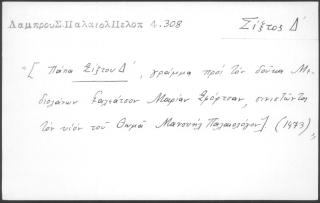 Λαμπρου Σ. Παλαιολ Πελοπ 4.308
Σίξτος Δ´
"[ Πάπα Σίξτου Δ´, γράμμα πρός τόν δούκα Με-
διολάνων Γαλεάτσον Μαρίαν Σφόρτσαν, συνιστῶντος
τόν υἱόν τοῦ Θωμᾶ Μανουήλ Παλαιολόγον] (1473)